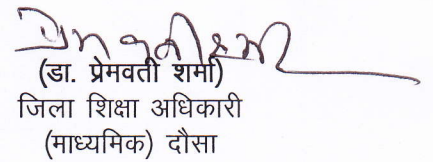 (डा. प्रेमवती शर्मा)
जिला शिक्षा अधिकारी
(माध्यमिक) दौसा